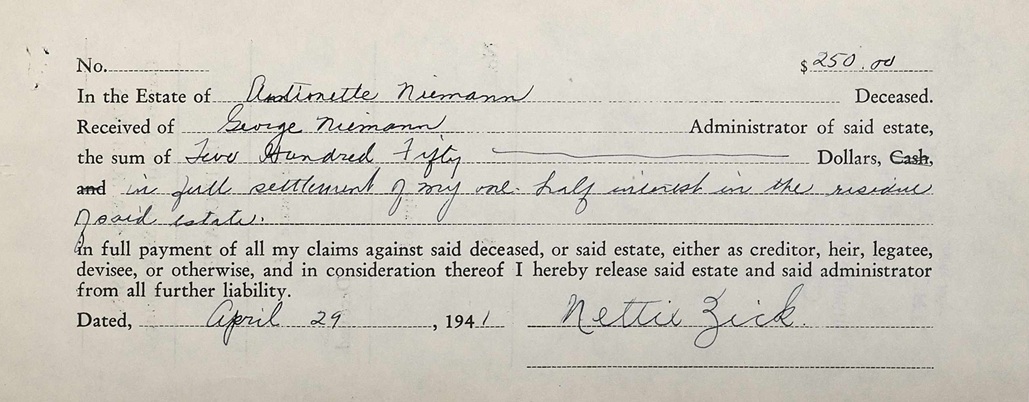 No. $250.00
In the Estate of Antionette Niemann Deceased.
Received of George Niemann Administrator of said estate,
the sum of Two Hundred Fifty Dollars, Cash,
and in full settlement of my one-half interest in the residue
of said estate.
In full payment of all my claims against said deceased, or said estate, either as creditor, heir, legatee,
devisee, or otherwise, and in consideration thereof I hereby release said estate and said administrator
from all further liability.
Dated, April 29, 1941 Nettie Zick.